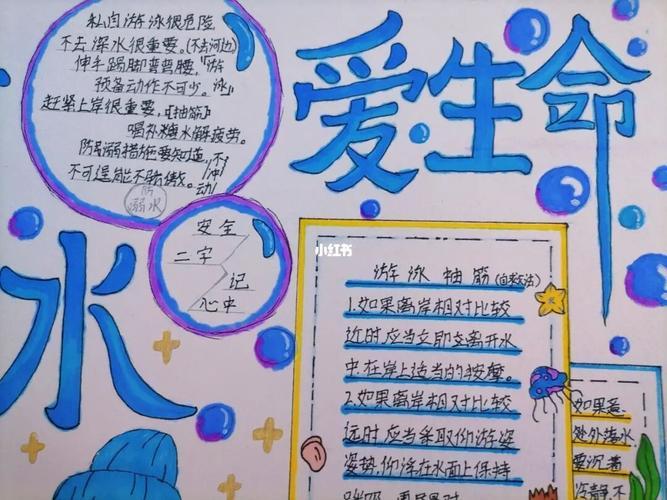 私自游泳很危险
不去深水很重要。(不去河边
伸手踢脚弯弯腰，"游
预备动作不可少。泳"
赶紧上岸很重要，【抽筋】
喝补糖水解疲劳。
防溺措施要知道，
不可逞能不骄傲。
防
溺水
安全
二字
记
心中
爱生命
水
小红书
游泳抽筋(自救方法)
1.如果离岸相对比较
近时应当立即
离开水
中在岸上适当的按摩。
2.如果离岸相对比较
远时应当采取仰游姿
姿势，仰浮在水面上保持
如果意
外落水
要沉着
冷静，不